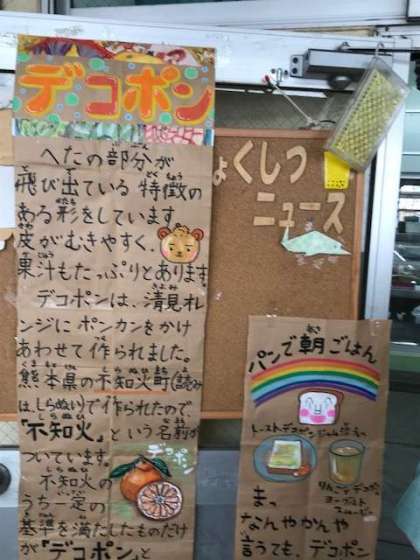 デコポン
へたの部分が
飛び出ている特徴の
ある形をしています。
皮がむきやすく、
果汁もたっぷりとあります。
デコポンは、清見オレ
ンジにポンカンをかけ
あわせて作られました。
熊本県の不知火町(読み
は、しらぬい)で作られたので、
『不知火』という名前が
ついています。
不知火の
うち一定の
基準を満たしたものだけ
が『デコポン』と
デコポン
ょくしつ
ニュース
パンで朝ごはん
トーストデコポンジャム
りんごデコポン
ヨーグルト
スムージー
まっ
なんやかんや
言うても、デコポン